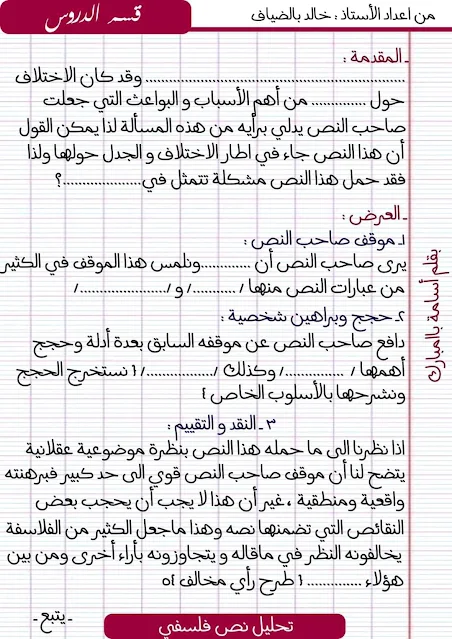 من اعداد الأستاذ : خالد بالضياف
قسم الدروس
ـ المقدمة :
................................................ وقد كان الاختلاف
حول ............ من أهم الأسباب و البواعث التي جعلت
صاحب النص يدلي برأيه من هذه المسألة لذا يمكن القول
أن هذا النص جاء في اطار الاختلاف و الجدل حولها ولذا
فقد حمل هذا النص مشكلة تتمثل في..................؟
ـ العرض :
1ـ موقف صاحب النص :
يرى صاحب النص أن ............ونلمس هذا الموقف في الكثير
من عبارات النص منها / ........../ و /..................../
2ـ حجج وبراهين شخصية :
دافع صاحب النص عن موقفه السابق بعدة أدلة وحجج
أهمها / ............../ وكذلك /................/ { نستخرج الحجج
ونشرحها بالأسلوب الخاص }
3 ـ النقد و التقييم :
اذا نظرنا الى ما حمله هذا النص بنظرة موضوعية عقلانية
يتضح لنا أن موقف صاحب النص قوي الى حد كبير فبرهنته
واقعية ومنطقية ، غير أن هذا لا يجب أن يحجب بعض
النقائص التي تضمنها نصه وهذا ماجعل الكثير من الفلاسفة
يخالفونه النظر في ماقاله و يتجاوزونه بأراء أخرى ومن بين
هؤلاء ............. { طرح رأي مخالف }ه
بقلم أسامة بالمبارك
ـ يتبع ـ
تحليل نص فلسفي